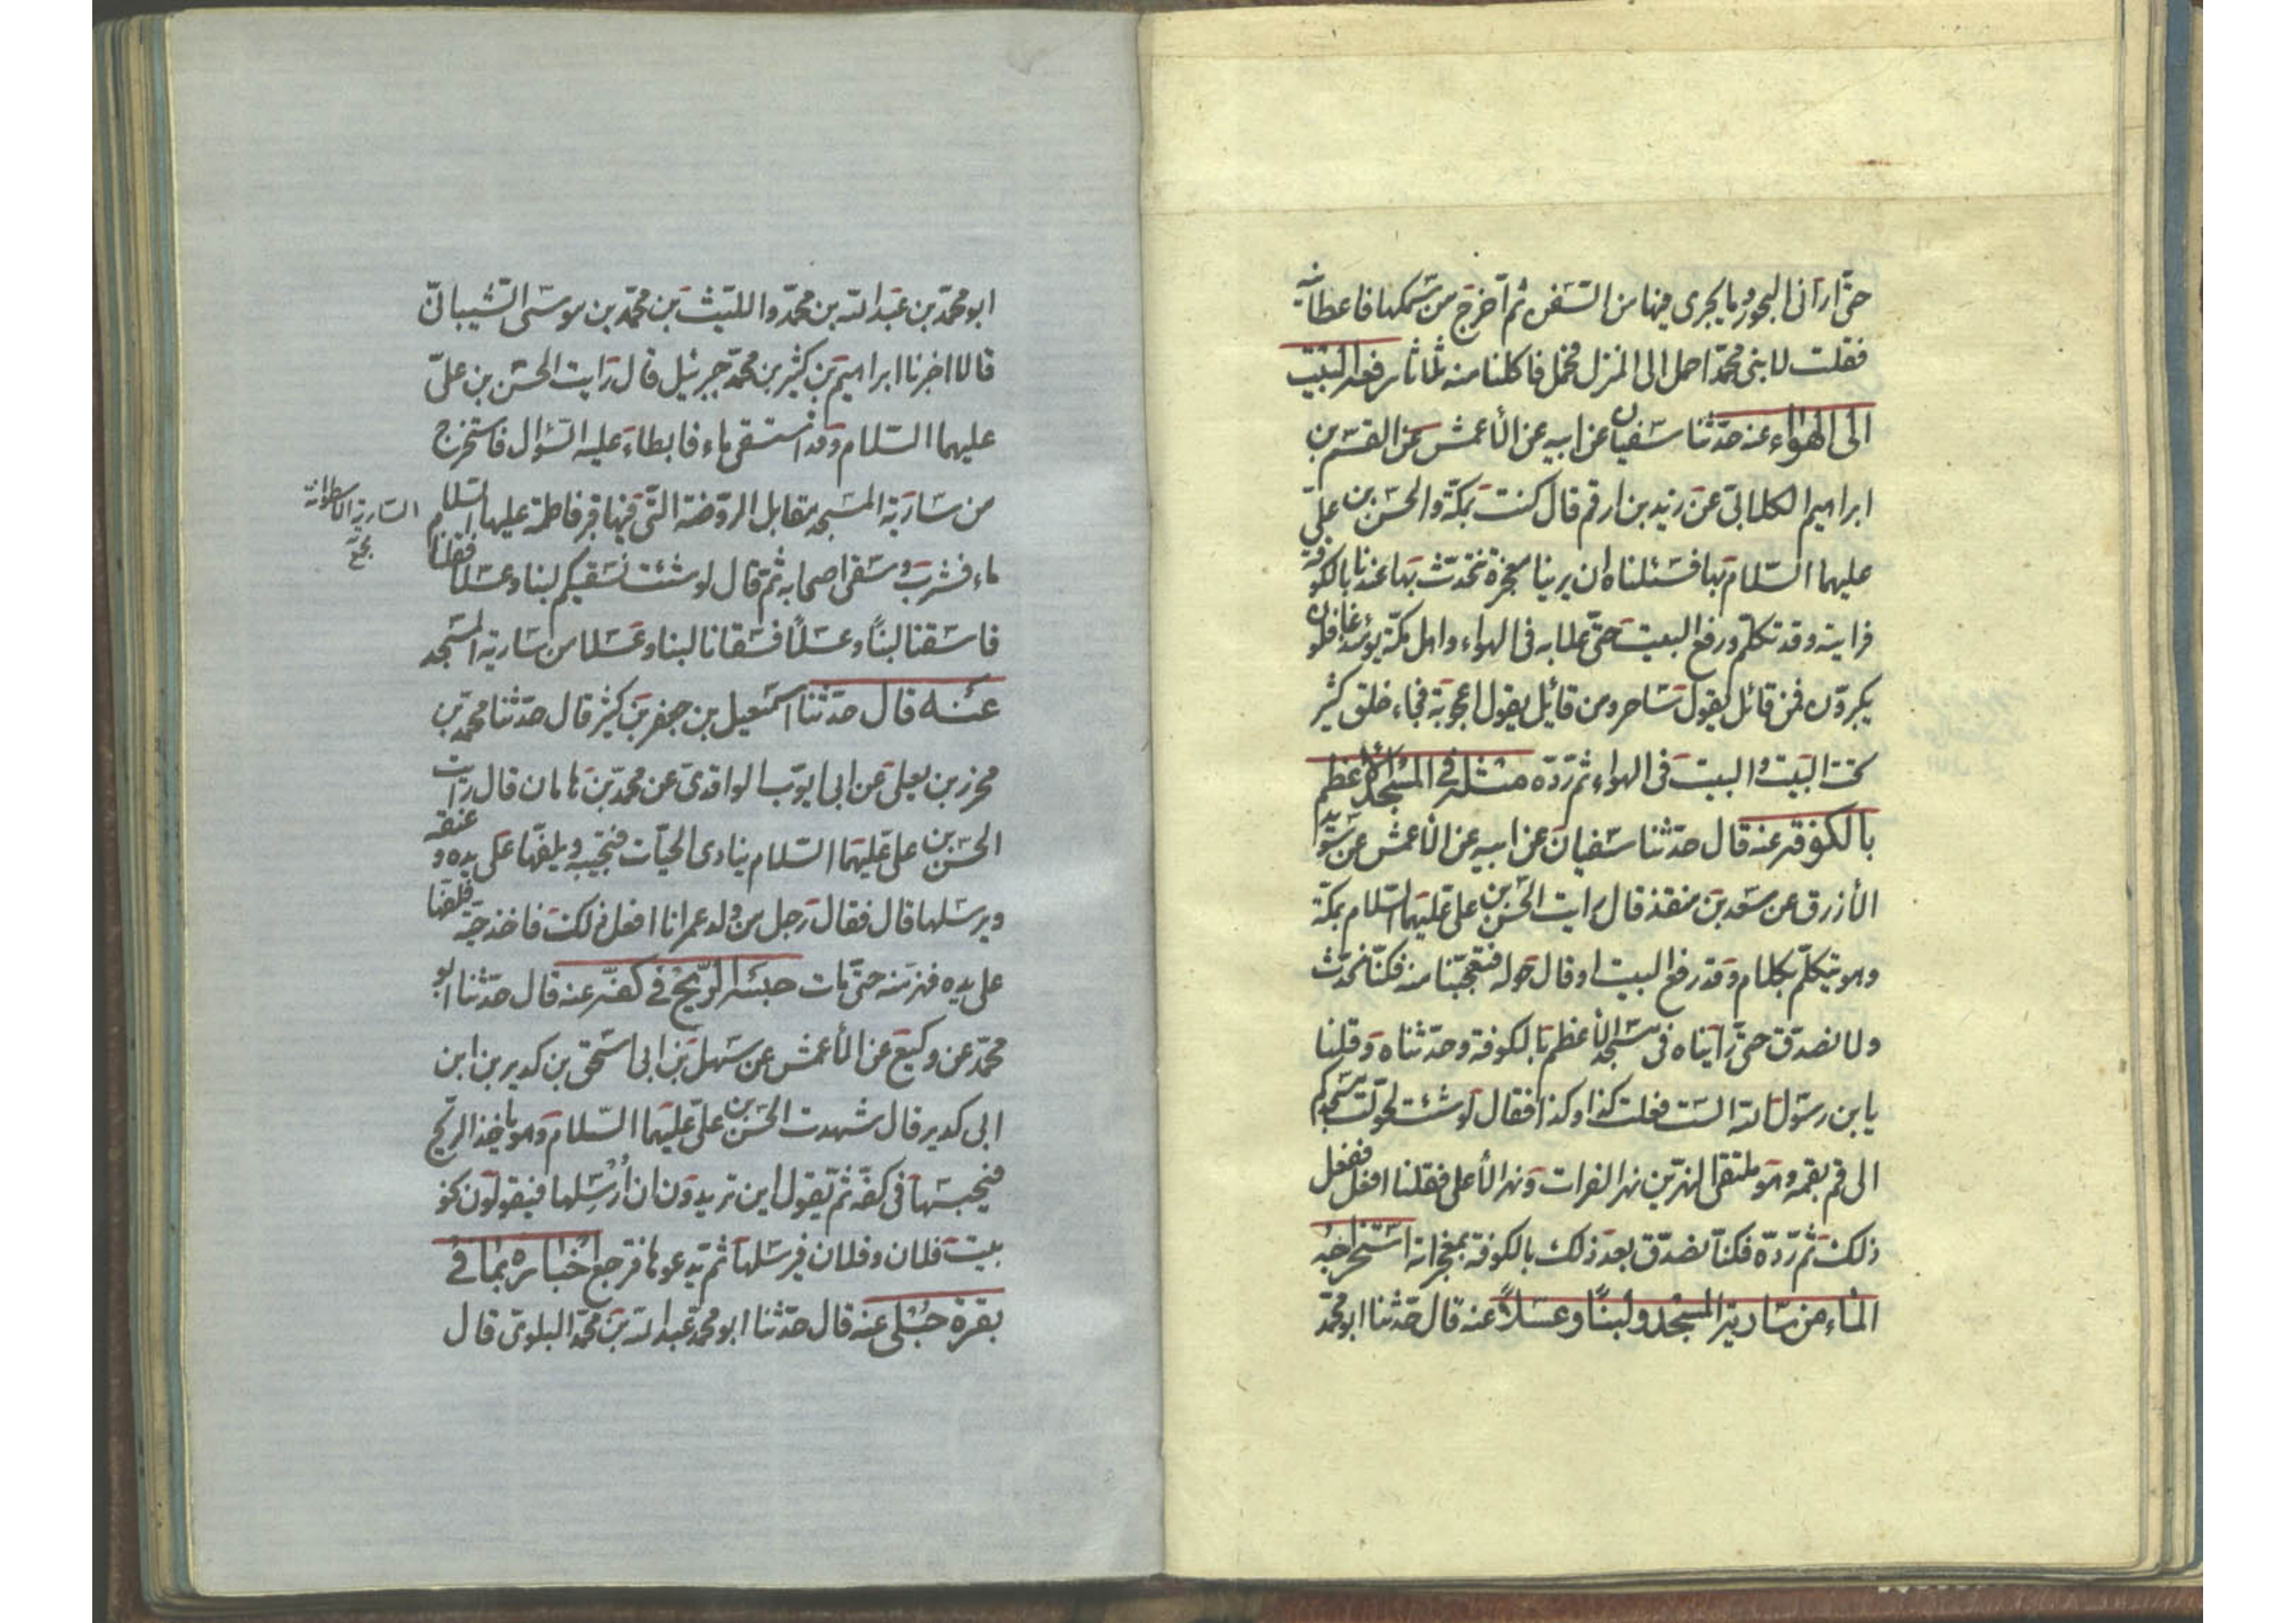 حتّى اراني البحور وما يجرى فيها من السّفن ثم اخرج من سمكها فاعطانيه
فقلت لابنى محمّد احمل الى المنزل فحمل فاكلنا منه ثلاثا رفعه البيت
الى الهواء عنه حدّثنا سفيان عن ابيه عن الأعمش عن القسم بن
ابراهيم الكلابى عن زيد بن ارقم قال كنت بمكّة والحسن بن علىّ
عليهما السّلام بها فسئلناه ان يرينا معجزة نتحدّث بها عندنا بالكوفة
فرايته وقد تكلّم ورفع البيت حتّى علا به فى الهواء واهل مكّة يومئذ غافلون
يكبرون فمن قائل يقول ساحر ومن قائل يقول اعجوبة فجاء خلق كثير
تحت البيت والبيت فى الهواء ثم ردّه مثله في المسجد الأعظم
بالكوفة عنه قال حدّثنا سفيان عن ابيه عن الأعمش عن سويد
الأزرق عن سعد بن منقذ قال رايت الحسن بن على عليهما السّلام بمكّة
وهو يتكلّم بكلام وقد رفع البيت او قال حوله فتعجّبنا منه فكنّا نحدّث
ولا نصدّق حتّى رايناه فى مسجد الأعظم بالكوفة وحدّثناه وقلنا
يابن رسول الله الست فعلت كذا وكذا فقال لو شئت لحوّلت مسجدكم
الى فم بقمه وهو ملتقى النهرين نهر الفرات ونهر الأعلى فقلنا افعل ففعل
ذلك ثم ردّه فكنّا نصدّق بعد ذلك بالكوفة بمعجزاته استخراجه
الماء من سارية المسجد ولبنًا وعسلاً عنه قال حدّثنا ابو محمّد
ابو محمّد بن عبد الله بن محمّد والليث بن محمّد بن موسى الشّيبانىّ
قالا اخبرنا ابراهيم بن كثير بن محمّد جبرئيل قال رايت الحسن بن علىّ
عليهما السّلام وقد استسقى ماء فابطاء عليه السّؤال فاستخرج
من سارية المسجد مقابل الروضة الّتى فيها قبر فاطمة عليها السّلام
ماء فشرب وسقى اصحابه ثمّ قال لو شئت نسقيكم لبنا وعسلا فقلنا
فاسقنا لبنًا وعسلًا فسقانا لبنا وعسلا من سارية المسجد
عنه قال حدّثنا اسمعيل بن جعفر بن كثير قال حدّثنا محمّد بن
محرز بن يعلى عن ابى ايوّب الواقدى عن محمّد بن هامان قال رايت
الحسن بن على عليهما السّلام ينادى الحيّات فتجيبه ويلفّها على يده و عنقه
ويرسلها قال فقال رجل من ولد عمر انا افعل ذلك فاخذ حيّة فلفّها
على يده فهزمته حتّى مات حبسه الرّيح في كفّه عنه قال حدّثنا ابو
محمّد عن وكيع عن الأعمش عن سهل بن ابى اسحق بن كدير بن ابن
ابى كدير قال شهدت الحسن بن علىّ عليهما السّلام وهو ياخذ الريح
فيحبسها فى كفّه ثم يقول اين تريدون ان ارسلها فيقولون نحو
بيت فلان وفلان فيرسلها ثم يدعوها فترجع اخباره بما في
بقرة حبلى عنه قال حدّثنا ابو محمّد عبد الله بن محمّد البلوى قال
السارية الاسطوانة